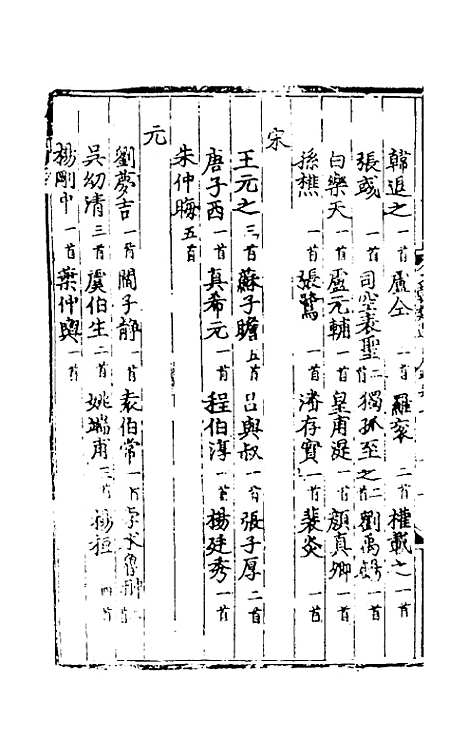 韓退之一首 盧仝一首 羅衮二首 權載之一首
張彧一首 司空表聖二首 獨孤至之二首 劉禹錫一首
白樂天一首 盧元輔一首 皇甫湜一首 顏真卿一首
孫樵一首 張鷟一首 潘存實一首 裴炎一首
宋
王元之三首 蘇子瞻五首 吕與叔一首 張子厚二首
唐子西一首 真希元一首 程伯淳一首 楊廷秀一首
朱仲晦五首
元
劉夢吉一首 閻子静一首 袁伯常一首
吳幼清三首 虞伯生二首 姚端甫三首 楊桓四首
楊剛中一首 葉仲輿一首